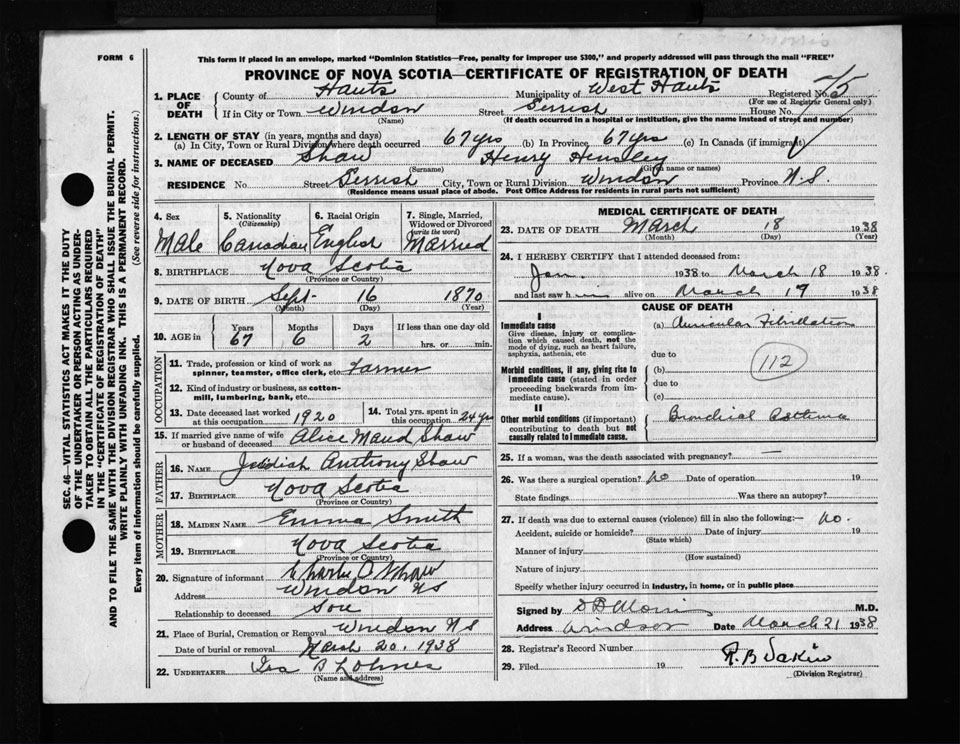 FORM 6
This form if placed in an envelope, marked "Dominion Statistics—Free, penalty for improper use $300," and properly addressed will pass through the mail "FREE"
PROVINCE OF NOVA SCOTIA—CERTIFICATE OF REGISTRATION OF DEATH
1. PLACE OF DEATH
County of Hants Municipality of West Hants Registered No.
(For use of Registrar General only)
If in City or Town Windsor Street Gerrish House No.
(Name) (If death occurred in a hospital or institution, give the name instead of street and number)
2. LENGTH OF STAY (in years, months and days)
(a) In City, Town or Rural Division where death occurred 67 yrs (b) In Province 67 yrs (c) In Canada (if immigrant)
3. NAME OF DECEASED Shaw Henry Hensley
(Surname) (Given name or names)
RESIDENCE No. Street Gerrish City, Town or Rural Division Windsor Province N.S.
(Residence means usual place of abode. Post Office Address for residents in rural parts not sufficient)
4. Sex 5. Nationality 6. Racial Origin 7. Single, Married, Widowed or Divorced
(Citizenship) (write the word)
Male Canadian English Married
8. BIRTHPLACE Nova Scotia
(Province or Country)
9. DATE OF BIRTH Sept 16 1870
(Month) (Day) (Year)
10. AGE in Years Months Days If less than one day old
67 6 2 hrs. or min.
OCCUPATION
11. Trade, profession or kind of work as spinner, teamster, office clerk, etc. Farmer
12. Kind of industry or business, as cotton-mill, lumbering, bank, etc.
13. Date deceased last worked at this occupation 1920
14. Total yrs. spent in this occupation 24 yrs
15. If married give name of wife or husband of deceased Alice Maud Shaw
FATHER
16. NAME Jedidiah Anthony Shaw
17. BIRTHPLACE Nova Scotia
(Province or Country)
MOTHER
18. MAIDEN NAME Emma Smith
19. BIRTHPLACE Nova Scotia
(Province or Country)
20. Signature of informant Charles O Shaw
Address Windsor NS
Relationship to deceased Son
21. Place of Burial, Cremation or Removal Windsor NS
Date of burial or removal March 20. 1938
22. UNDERTAKER Ira B Lohnes
(Name and address)
MEDICAL CERTIFICATE OF DEATH
23. DATE OF DEATH March 18 1938
(Month) (Day) (Year)
24. I HEREBY CERTIFY that I attended deceased from:
Jan. 1938 to March 18 1938.
and last saw him alive on March 17 1938
CAUSE OF DEATH
I
Immediate cause
Give disease, injury or complication which caused death, not the mode of dying, such as heart failure, asphyxia, asthenia, etc
(a) Auricular Fibrillation
due to
Morbid conditions, if any, giving rise to immediate cause (stated in order proceeding backwards from immediate cause).
(b) 112
due to
(c)
II
Other morbid conditions (if important) contributing to death but not causally related to immediate cause.
Bronchial Asthma
25. If a woman, was the death associated with pregnancy? —
26. Was there a surgical operation? No Date of operation 19
State findings Was there an autopsy?
27. If death was due to external causes (violence) fill in also the following:— No.
Accident, suicide or homicide? Date of injury 19
(State which)
Manner of injury
(How sustained)
Nature of injury
Specify whether injury occurred in industry, in home, or in public place
Signed by D B Morris M.D.
Address Windsor Date March 21 1938
28. Registrar's Record Number
29. Filed 19 R. B Dakin
(Division Registrar)
SEC. 46—VITAL STATISTICS ACT MAKES IT THE DUTY
OF THE UNDERTAKER OR PERSON ACTING AS UNDER-
TAKER TO OBTAIN ALL THE PARTICULARS REQUIRED
IN THE "CERTIFICATE OF REGISTRATION OF DEATH"
AND TO FILE THE SAME WITH THE DIVISION REGISTRAR WHO SHALL ISSUE THE BURIAL PERMIT.
WRITE PLAINLY WITH UNFADING INK. THIS IS A PERMANENT RECORD.
Every item of information should be carefully supplied. (See reverse side for instructions.)